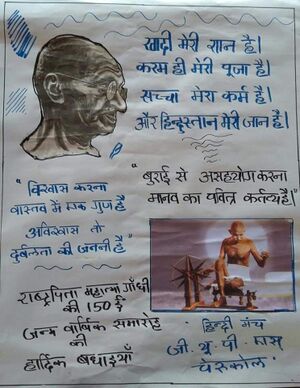 खादी मेरी शान है।
करम ही मेरी पूजा है।
सच्चा मेरा कर्म है।
और हिन्दुस्तान मेरी जान है।
"विश्वास करना
वास्तव में एक गुण है
अविश्वास तो
दुर्बलता की जननी है"
"बुराई से असहयोग करना
मानव का पवित्र कर्तव्य है"
राष्ट्रपिता महात्मा गाँधी
की 150 ई
जन्म वार्षिक समारोह
की
हार्दिक बधाइयाँ
हिन्दी मंच
जी. यू. पी. एस
चेरुकोल